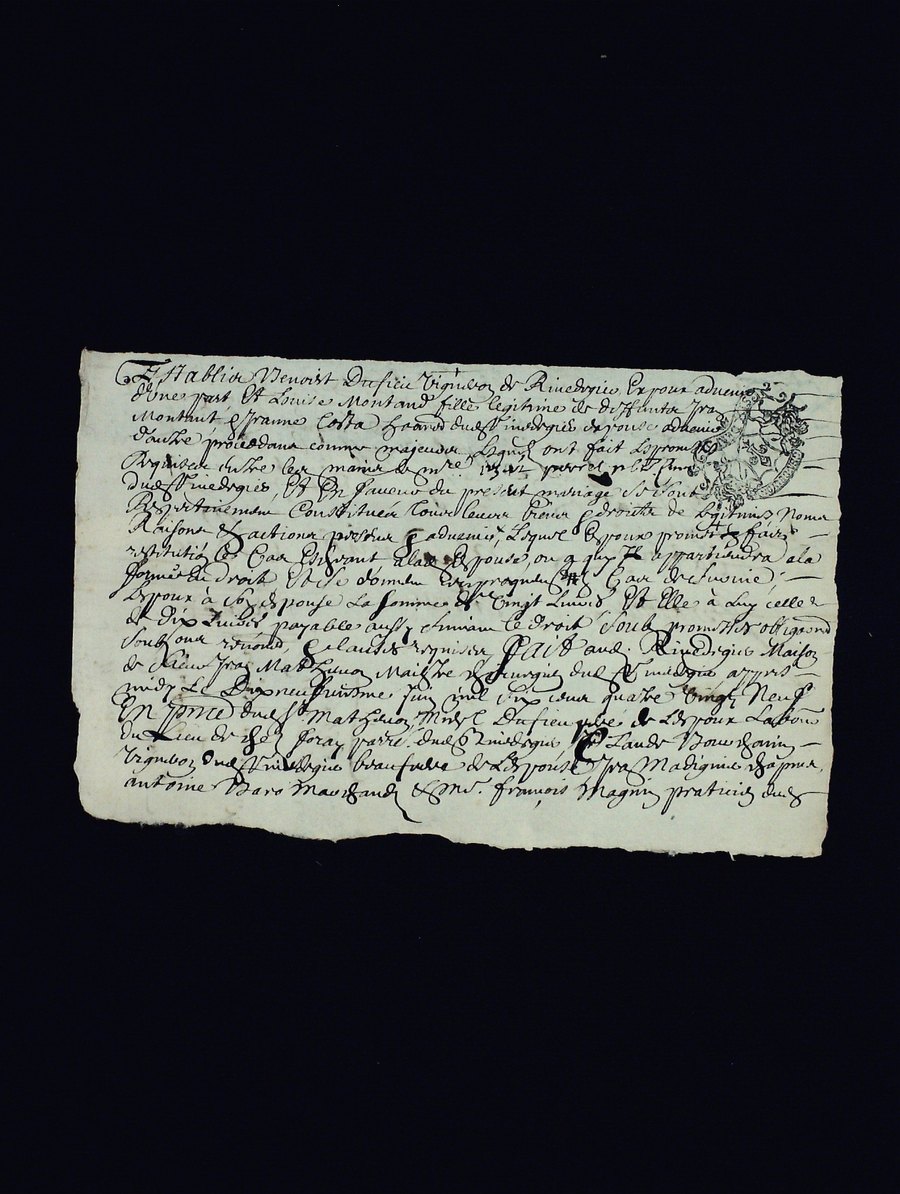 Establis Benoist Dufieu vigneron de Rivedegier Expoux advenir
d'Une part Et Louise Montand fille legitime de deffuntz Fra
Montant & Jeanne Costa habitante dud Rivedegier Espouse advenir
d'autre procedans comme majeurs, Lesquels ont fait Les promesses
Requises entre les mains de mre
dud Rivedegier, Et En faveur du present mariage Se Sont
Respectivement Constitues tous leurs biens & droitz de legitimes Noms
Raisons & actions presens & advenir, Lequel Espoux promet faire
restituer le Cas Escheant a lad Espouse, ou a quy Il appartiendra a la
forme du droit Et Se donnent en cas de Survie
Lespoux à Son Espouse La Somme de Vingt Livres Et Elle à Luy celle
de Dix Livres payable aussy Suivant le droit Soub promesses obligaons
Soubmissions renons, & clauses requises, Fait aud. Rivedegier Maison
de Sieur Fra Mathevon Maistre Chirurgien dud Rivedegier appres
midy Le Dixneufviesme Juin mil Six cens quatre vingtz Neuf
En pnce dud Sr Mathevon, Michel Dufieu pere de Lespoux Laboureur
du Lieu de chez Joray parr. dud Rivedegier Claude Bonchanin
Vigneron dud Rivedegier beaufrere de Lespouse Fra Madignier
antoine Baro Marchand & Mr. François Magnin praticien dud